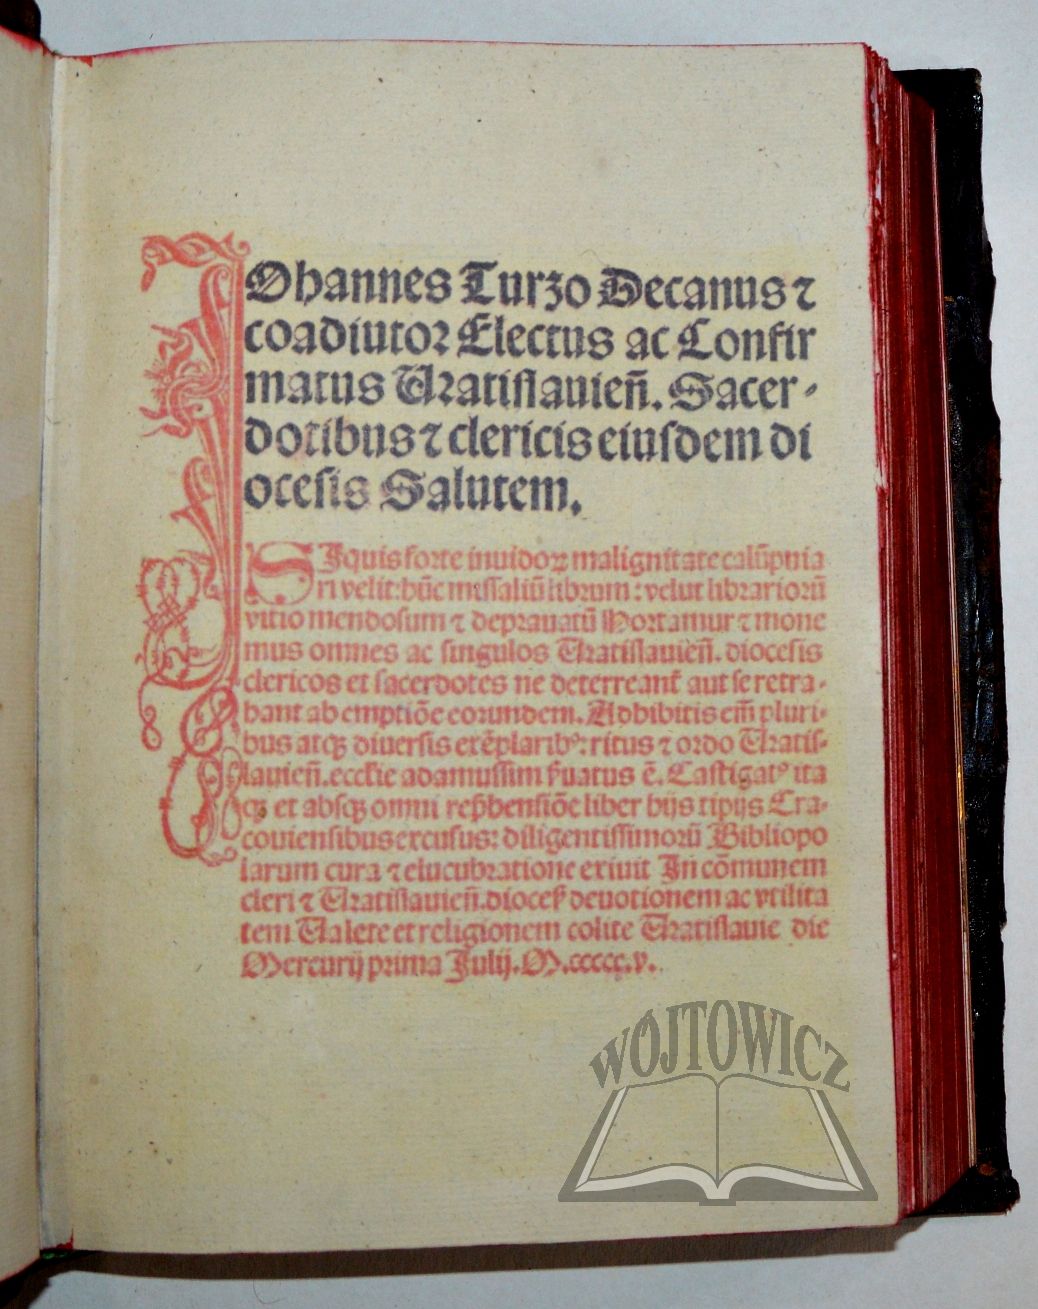 IOhannes Turzo Decanus ⁊
coadiutoꝛ Electus ac Confir
matus Vꝛatiſlauień. Sacer-
dotibus ⁊ clericis eiuſdem di
oceſis Salutem.
SIquis foꝛte inuidoꝝ malignitate calūpnia
ri velit: hūc miſſaliū librum: velut librarioꝛū
vitio mendoſum ⁊ depꝛauatū Hoꝛtamur ⁊ mone
mus omnes ac ſingulos Vꝛatiſlauień. dioceſis
clericos et ſacerdotes ne deterreant᷑ aut ſe retra-
hant ab emptiōe eoꝛundem. Adhibitis em̄ pluri-
bus atqꝫ diuerſis exēplaribꝰ: ritus ⁊ oꝛdo Vꝛatiſ-
lauień. eccƚie adamuſſim ẜuatus ē. Caſtigatꝰ ita
qꝫ et abſqꝫ omni rep̄henſiōe liber hijs tipijs Cra-
couienſibus excuſus: diligentiſſimoꝛū Bibliopo
larum cura ⁊ elucubꝛatione exiuit In cōmunem
cleri ⁊ Vꝛatiſlauień. dioceẜ deuotionem ac vtilita
tem Valete et religionem colite Vꝛatiſlauie die
Mercurij pꝛima Julij. M.ccccc.v.
WÓJTOWICZ